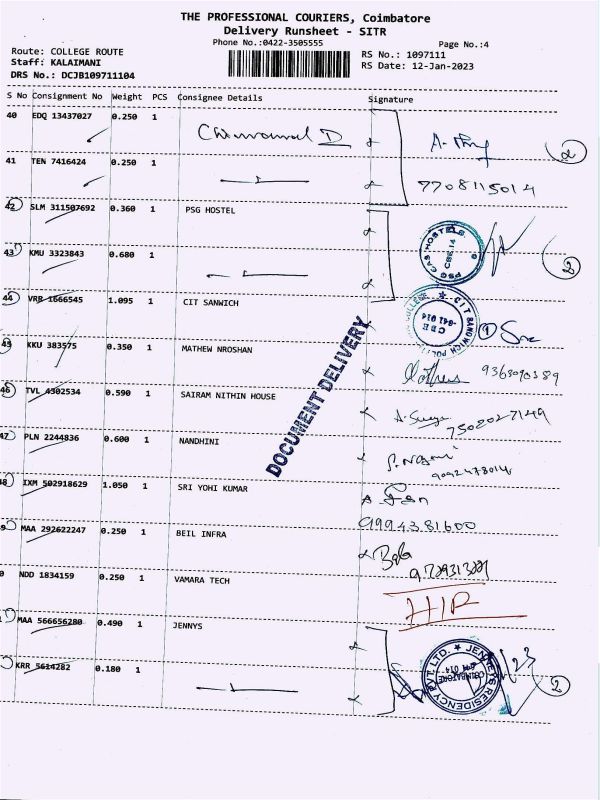 THE PROFESSIONAL COURIERS, Coimbatore
Delivery Runsheet - SITR
Phone No.:0422-3505555
Page No.:4
Route: COLLEGE ROUTE
Staff: KALAIMANI
DRS No.: DCJB109711104
RS No.: 1097111
RS Date: 12-Jan-2023
S No Consignment No Weight PCS Consignee Details Signature
40 EDQ 13437027 0.250 1
41 TEN 7416424 0.250 1 7708115014
42 SLM 311507692 0.360 1 PSG HOSTEL
43 KMU 3323843 0.680 1
PSG CAS HOSTEL
CBE.14
44 VRB 1666545 1.095 1 CIT SANWICH
CIT SANDWICH
COLLEGE
CBE
-641 014
45 KKU 383575 0.350 1 MATHEW NROSHAN
DOCUMENT DELIVERY
46 TVL 4302534 0.590 1 SAIRAM NITHIN HOUSE
47 PLN 2244836 0.600 1 NANDHINI
48 IXM 502918629 1.050 1 SRI YOHI KUMAR
9994381600
MAA 292622247 0.250 1 BEIL INFRA
NDD 1834159 0.250 1 VAMARA TECH
MAA 566656280 0.490 1 JENNYS
KRR 5614282 0.180 1
JENNEYS RESIDENCY PVT. LTD.
COIMBATORE
2